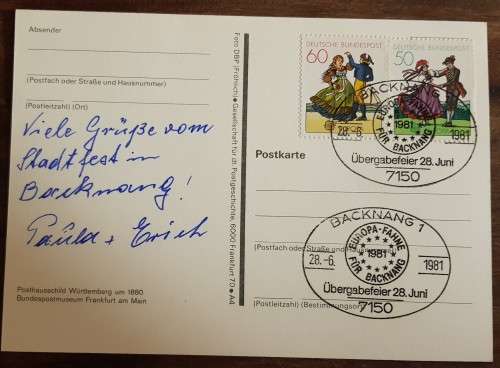 Absender
(Postfach oder Straße und Hausnummer)
(Postleitzahl) (Ort)
Viele Grüße vom
Stadtfest in
Backnang!
Paula + Erich
Posthausschild Württemberg um 1890
Bundespostmuseum Frankfurt am Main
Foto DBP (Fröhlich) ● Gesellschaft für dt. Postgeschichte, 6000 Frankfurt 70 ● A4
DEUTSCHE BUNDESPOST
60
DEUTSCHE BUNDESPOST
50
BACKNANG 1
EUROPA-FAHNE
28.-6.
1981
1981
FÜR BACKNANG
Übergabefeier 28. Juni
7150
Postkarte
BACKNANG 1
EUROPA-FAHNE
(Postfach oder Straße und Hausnummer)
28.-6.
1981
1981
FÜR BACKNANG
Übergabefeier 28. Juni
(Postleitzahl) (Bestimmungsort)
7150